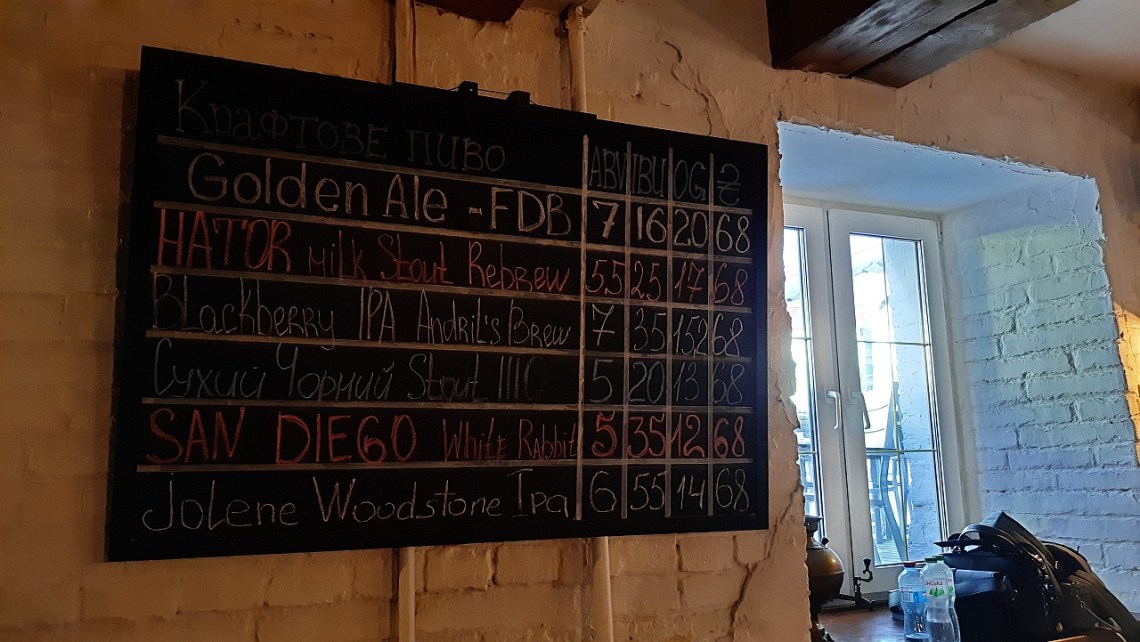 Крафтове пиво ABV IBU OG ₴
Golden Ale - FDB 7 16 20 68
HATOR milk Stout Rebrew 5,5 25 17 68
Blackberry IPA Andril's Brew 7 35 15,2 68
Сухий Чорний Stout ШО 5 20 13 68
SAN DIEGO White Rabbit 5 35 12 68
Jolene Woodstone Ipa 6 55 14 68